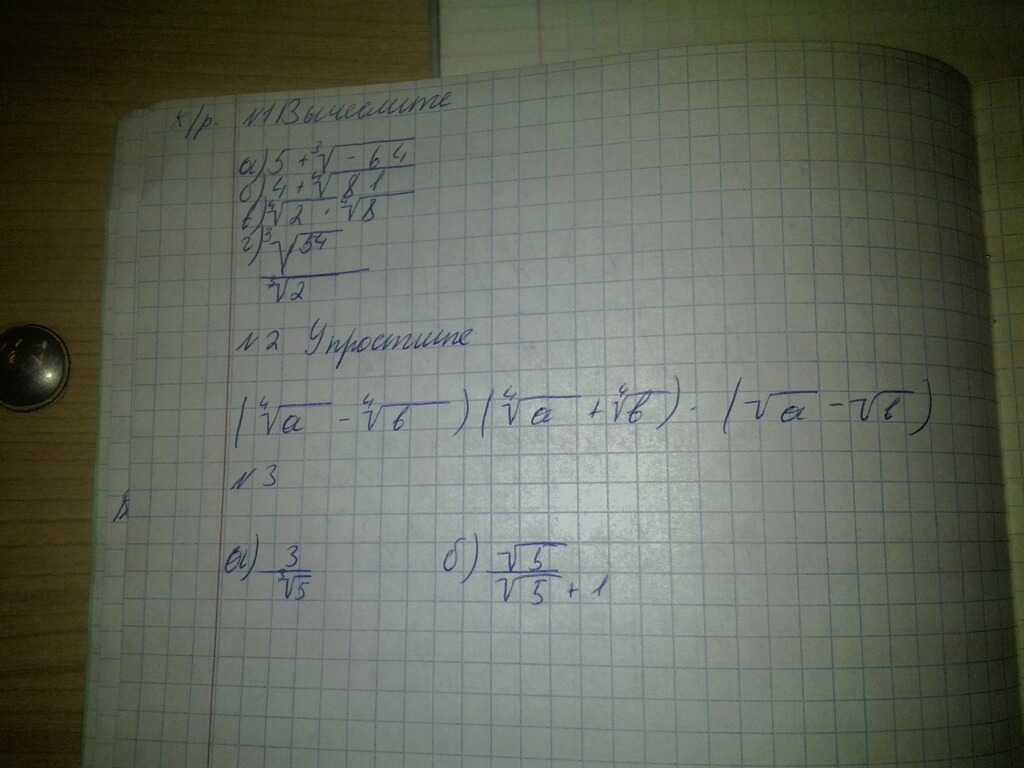 к/р. №1 Вычеслите
а) 5 + ∛-64
б) 4 + ∜81
в) ∜2 · ∜8
г) ∛54
∛2
№2 Упростите
(∜a - ∜b)(∜a + ∜b) - (√a - √b)
№3
а) 3 б) √5
∛5 √5 + 1